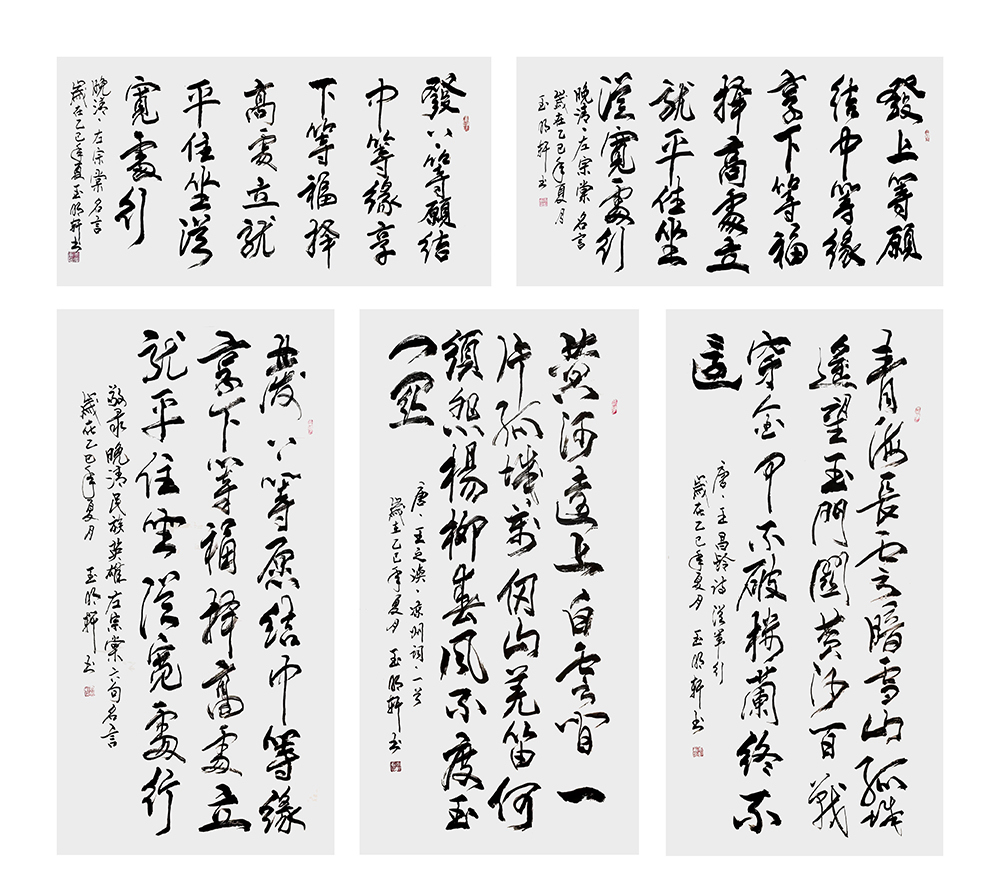 發上等願結
中等緣享
下等福擇
高處立就
平住坐從
寬處行
晚清·左宗棠名言
歲在乙巳年夏玉明軒书
發上等願
結中等緣
享下等福
擇高處立
就平住坐
從寬處行
晚清·左宗棠名言
歲在乙巳年夏月
玉明軒书
發上等愿結中等緣
享下等福擇高處立
就平住坐從寬處行
敬录晚清民族英雄左宗棠六句名言
歲在乙巳年夏月 玉明軒书
黄河遠上白雲间一
片孤城萬仞山羌笛何
須怨楊柳春風不度玉
门關
唐·王之涣·凉州词·一首
歲在乙巳年夏月 玉明軒书
青海長云暗雪山孤城
遥望玉門關黄沙百戰
穿金甲不破楼蘭終不
還
唐·王昌龄诗從军行
歲在乙巳年夏月 玉明軒书